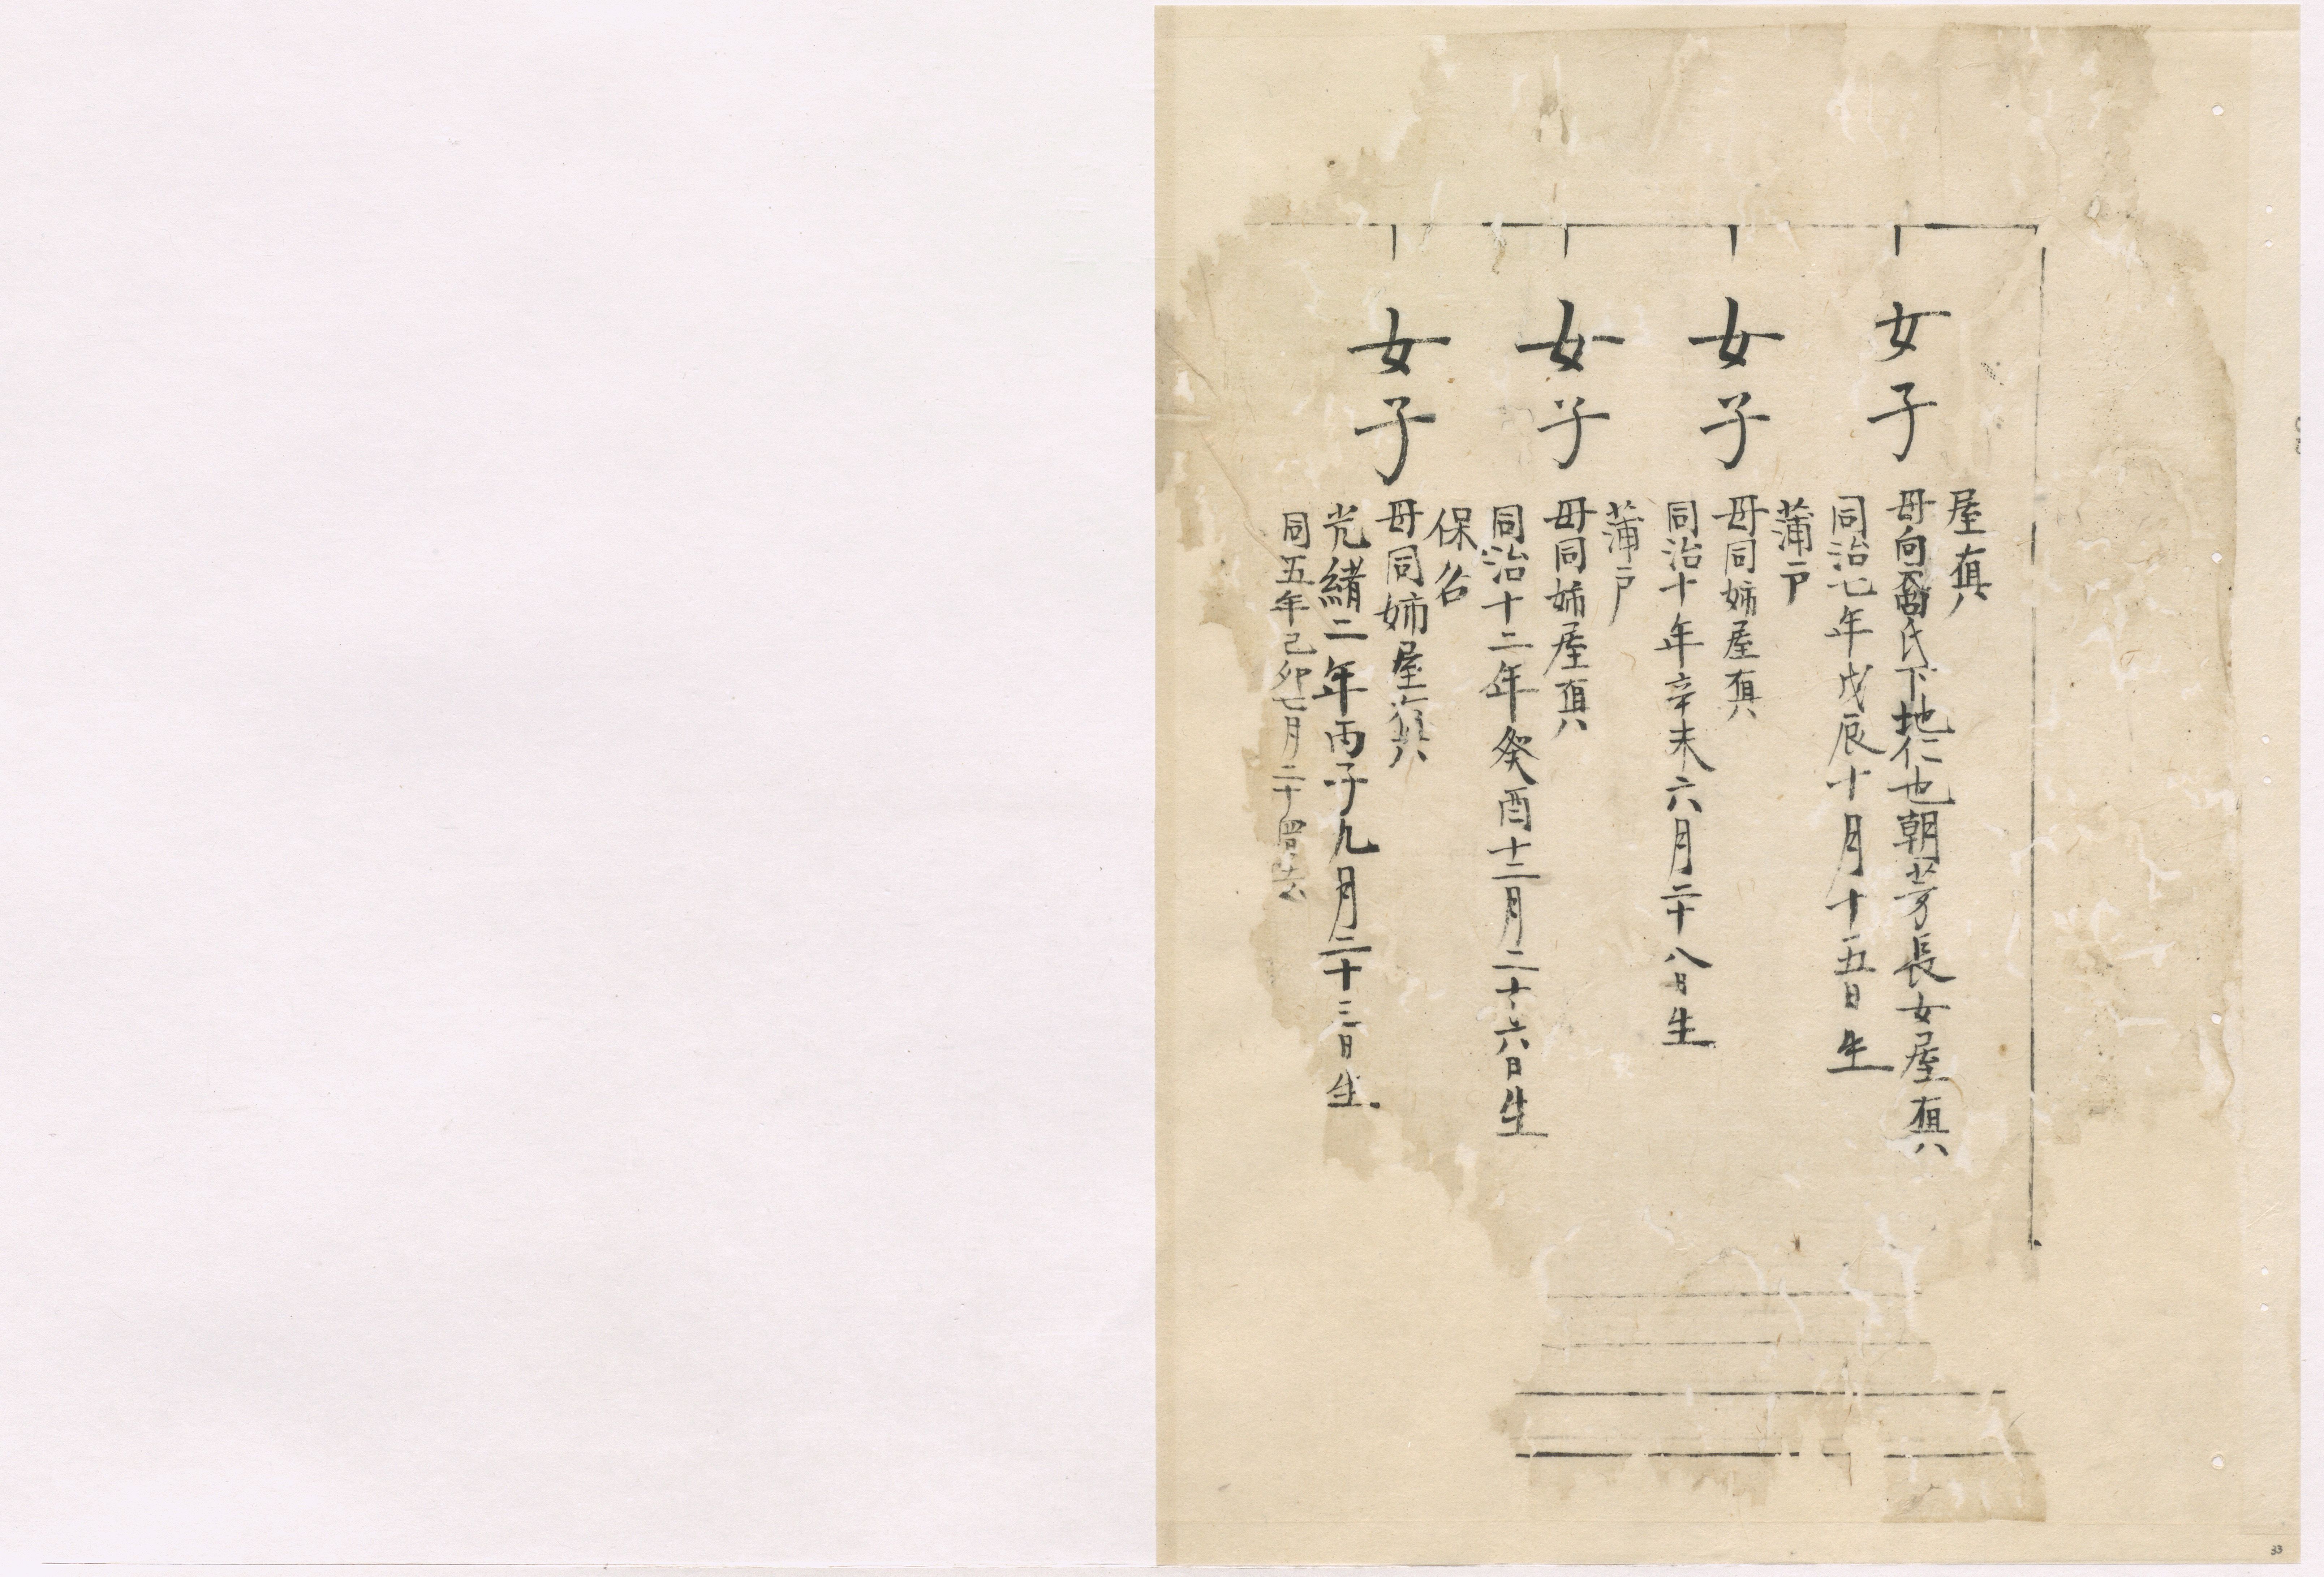 女子
屋真
母向裔氏下地仁也朝芳長女屋真
同治七年戊辰十月十五日生
女子
蒲戸
母同姉屋真
同治十年辛未六月二十八日生
女子
蒲戸
母同姉屋真
同治十二年癸酉十二月二十六日生
女子
保名
母同姉屋真
光緒二年丙子九月二十三日生
同五年己卯七月二十四日去
33